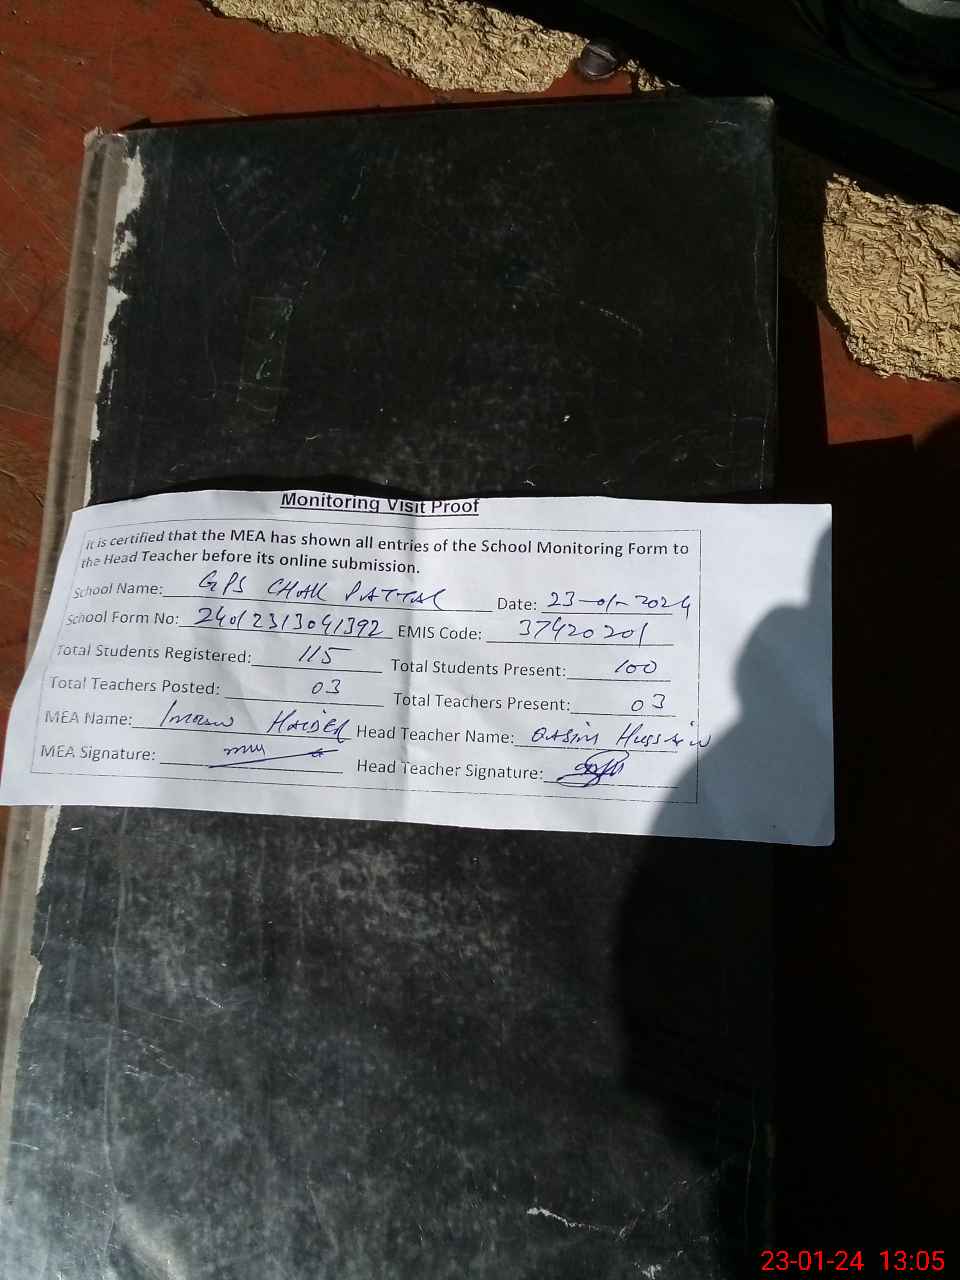 Monitoring Visit Proof
It is certified that the MEA has shown all entries of the School Monitoring Form to
the Head Teacher before its online submission.
School Name: GPS CHAK PATTAL Date: 23-01-2024
School Form No: 24012313041392 EMIS Code: 37420201
Total Students Registered: 115 Total Students Present: 100
Total Teachers Posted: 03 Total Teachers Present: 03
MEA Name: Imran HAIDER Head Teacher Name: QASIM HUSSAIN
MEA Signature: Head Teacher Signature:
23-01-24 13:05